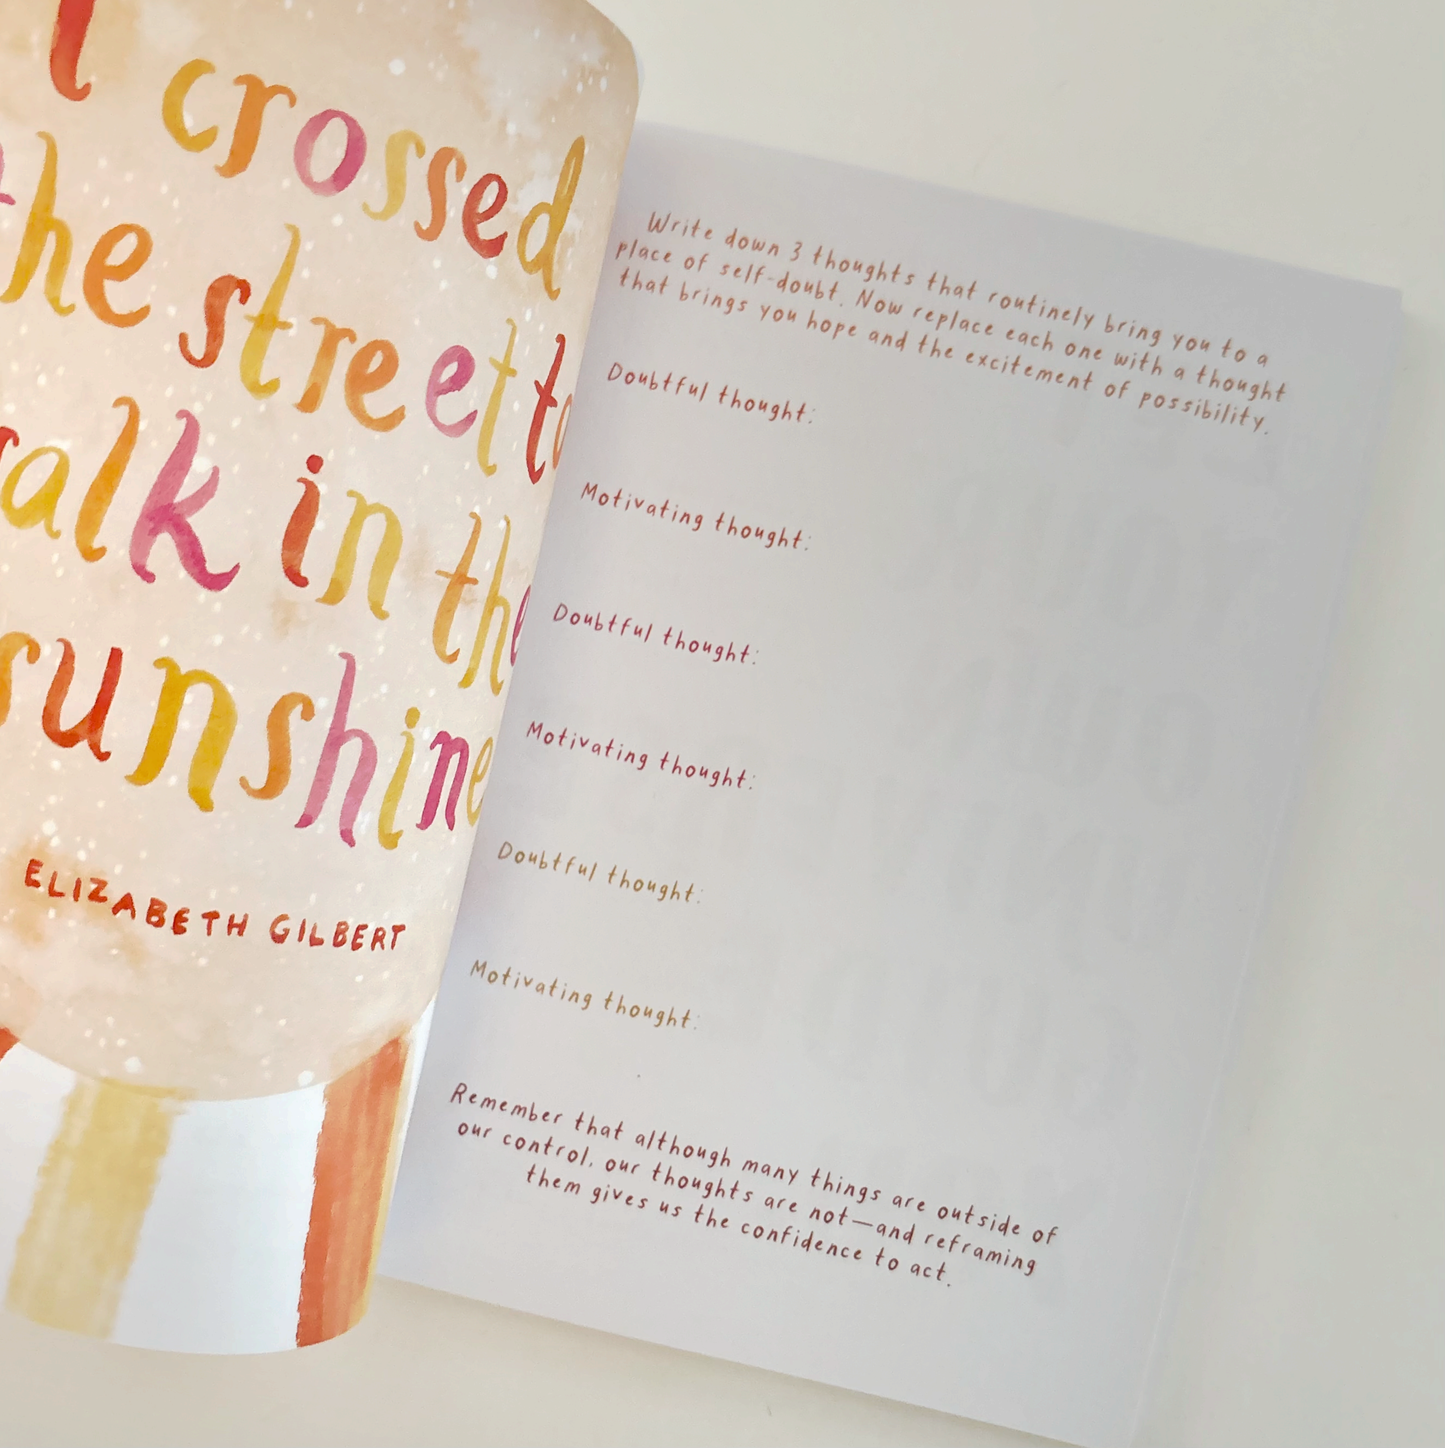 I crossed
the street to
walk in the
sunshine
ELIZABETH GILBERT
Write down 3 thoughts that routinely bring you to a
place of self-doubt. Now replace each one with a thought
that brings you hope and the excitement of possibility.
Doubtful thought:
Motivating thought:
Doubtful thought:
Motivating thought:
Doubtful thought:
Motivating thought:
Remember that although many things are outside of
our control, our thoughts are not—and reframing
them gives us the confidence to act.